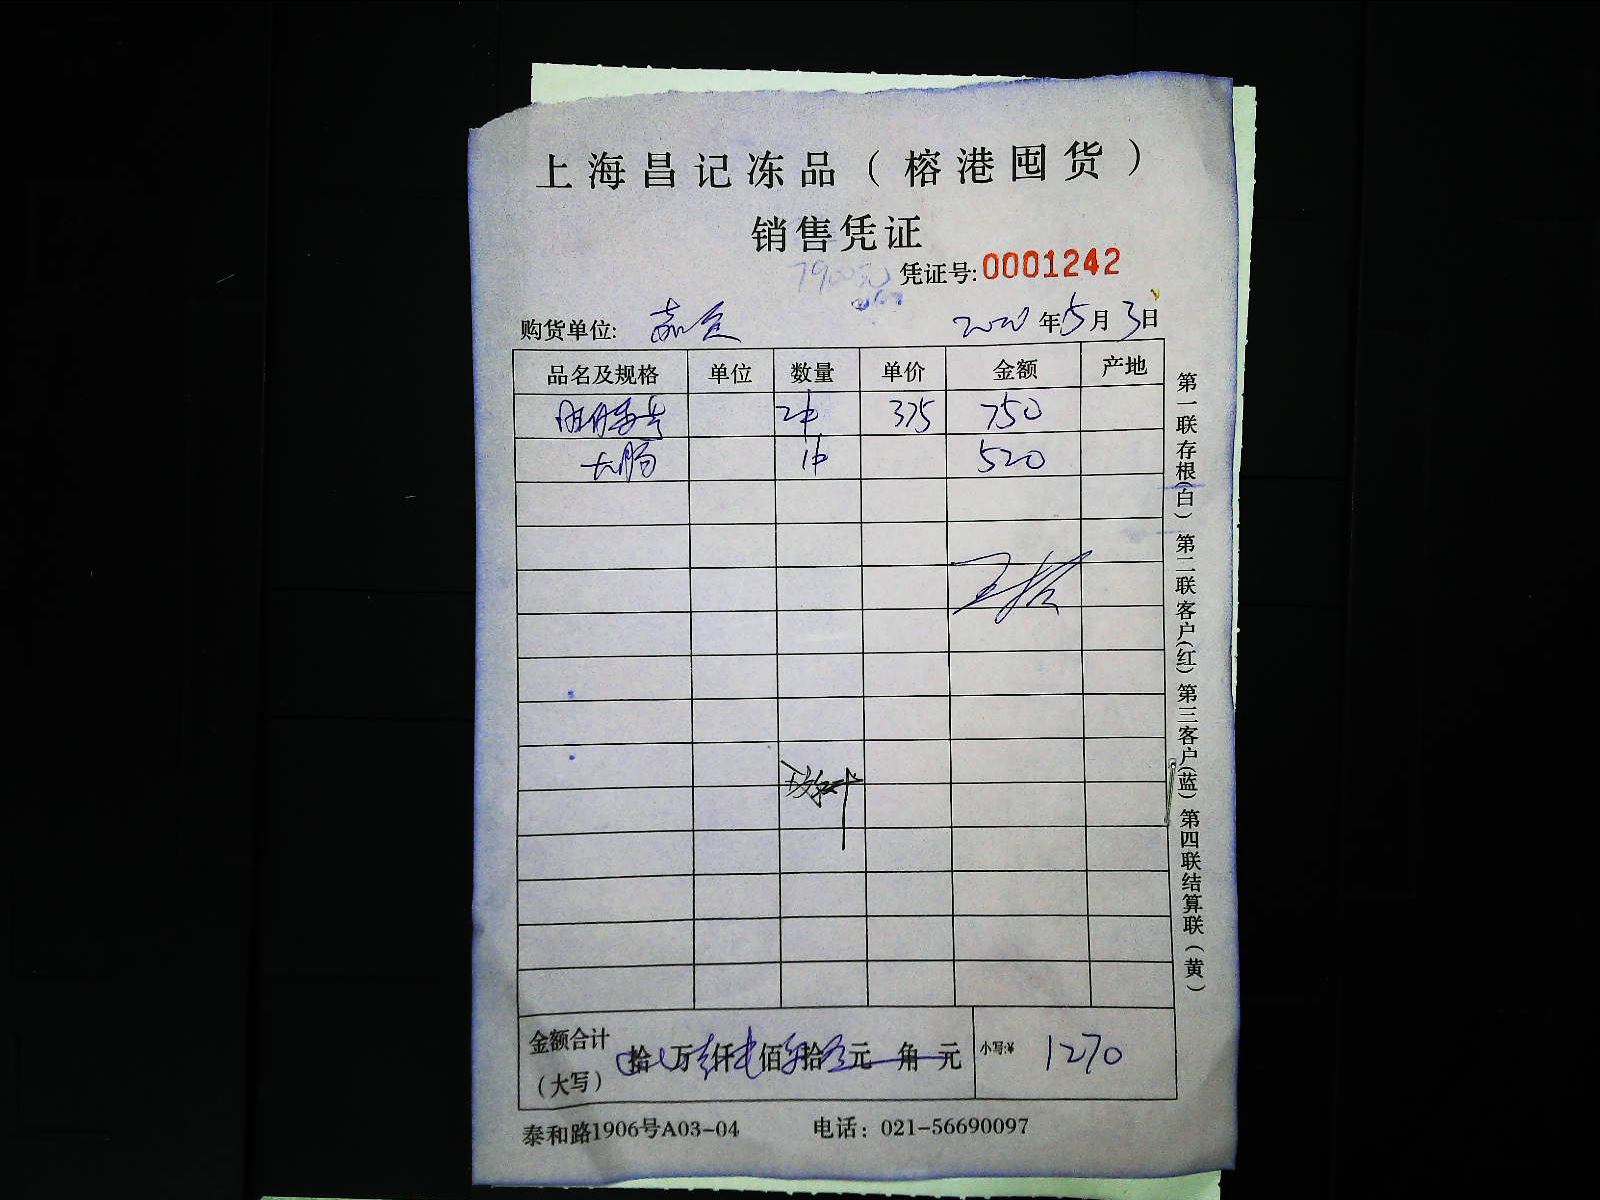 上海昌记冻品（榕港囤货）
销售凭证
7900元
凭证号:0001242
购货单位: 2020年5月3日
品名及规格 单位 数量 单价 金额 产地
2件 375 750
大肠 1件 520
金额合计 拾 万 仟 佰 拾 元 角 元 小写:¥ 1270
（大写）
泰和路1906号A03-04 电话：021-56690097
第一联存根(白) 第二联客户(红) 第三客户(蓝) 第四联结算联(黄)